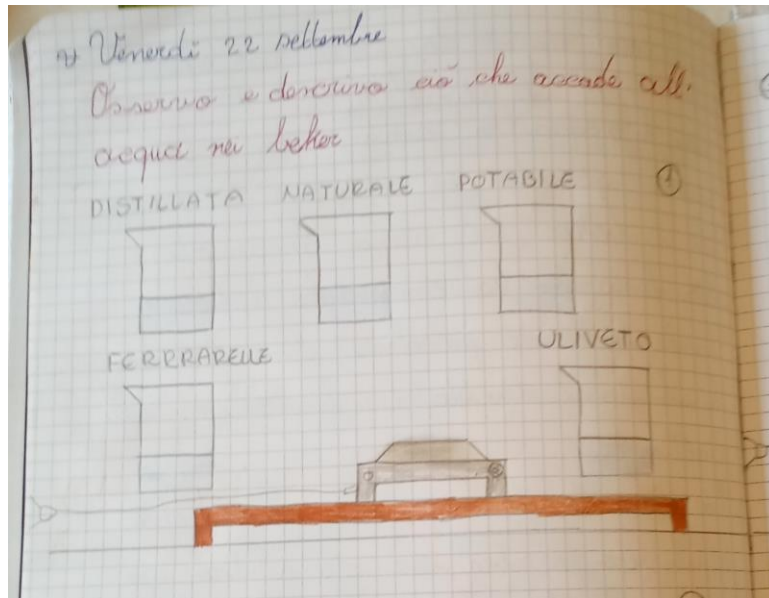 Venerdì 22 settembre
Osservo e descrivo ciò che accade all'
acqua nei beker
DISTILLATA NATURALE POTABILE 1
FERRARELLE ULIVETO